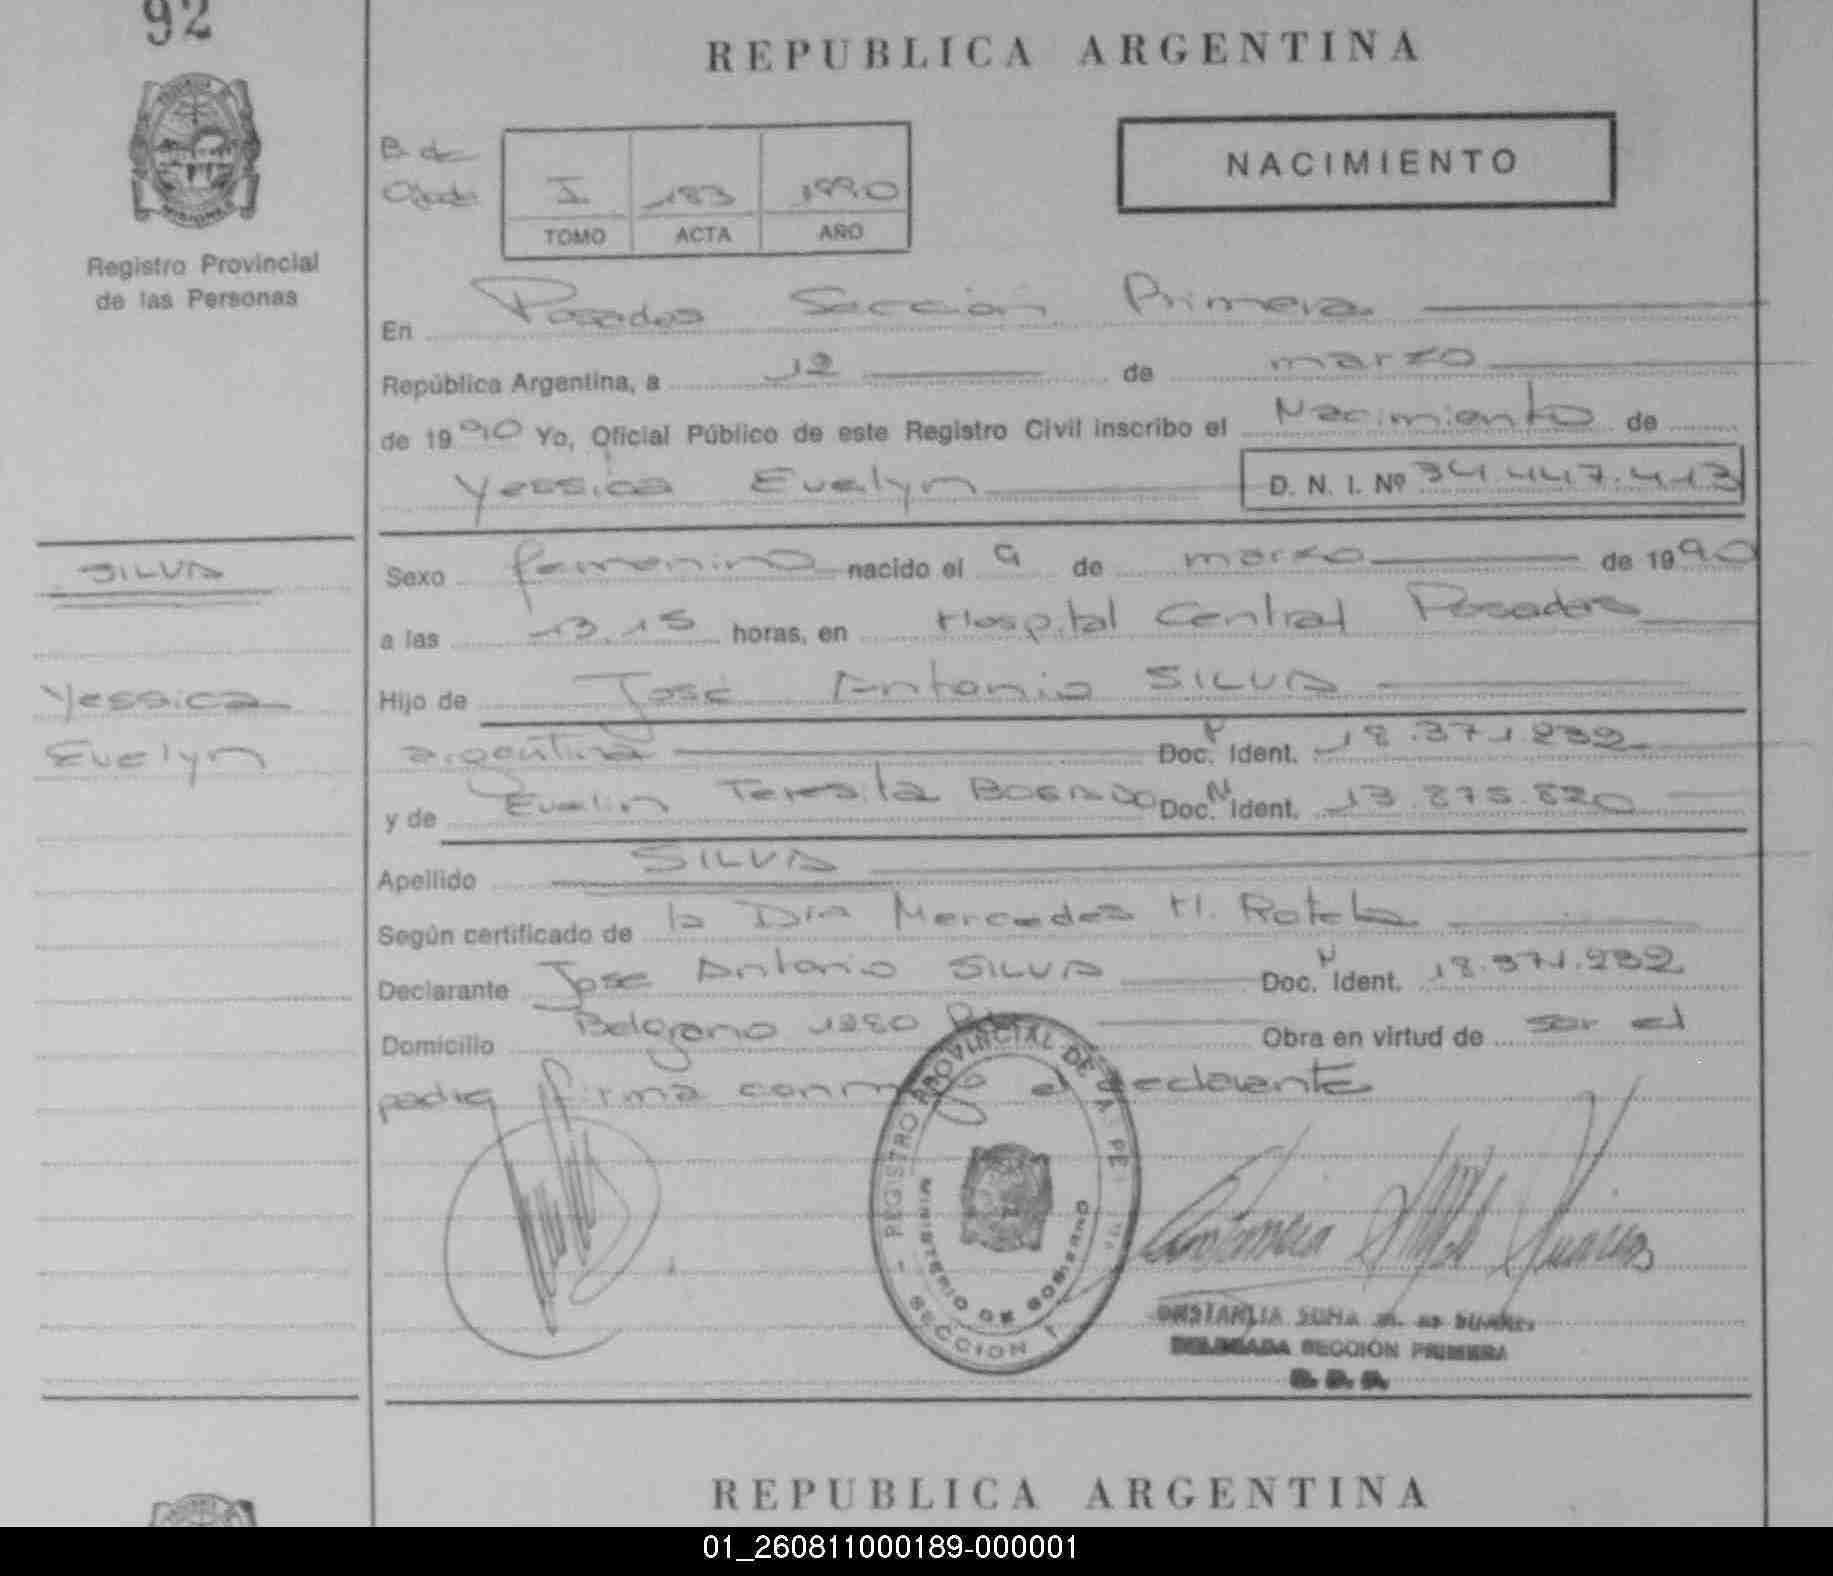 92
REPUBLICA ARGENTINA
NACIMIENTO
B. de
I 183 1990
TOMO ACTA AÑO
Registro Provincial
de las Personas
En Posadas Sección Primera
República Argentina, a 12 de marzo
de 1990 Yo, Oficial Público de este Registro Civil inscribo el Nacimiento de
Yessica Evelyn D. N. I. Nº 34.447.413
SILVA
Yessica
Evelyn
Sexo femenino nacido el 9 de marzo de 1990
a las 13.15 horas, en Hospital Central Posadas
Hijo de José Antonio SILVA
argentina Doc. Ident. 18.371.232
y de Evelin Teresita Doc. Ident. 13.875.820
Apellido SILVA
Según certificado de la Dra Mercedes H. Rotela
Declarante Jose Antonio SILVA Doc. Ident. 18.371.232
Domicilio Belgrano 1280 Obra en virtud de ser el
padre firma conmigo el declarante
REGISTRO PROVINCIAL DE LA PE
MINISTERIO DE GOBIERNO
SECCION 1
DELEGADA SECCIÓN PRIMERA
REPUBLICA ARGENTINA
01_260811000189-000001